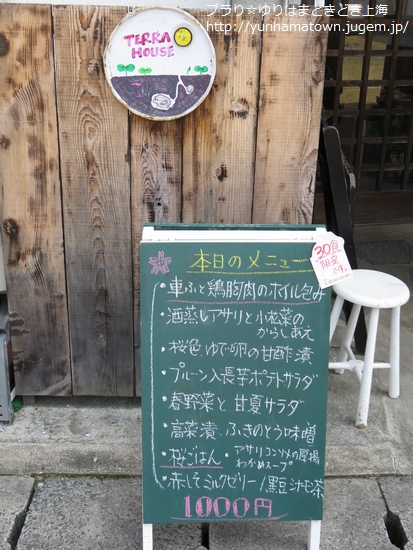 ブラリ☆ゆりはまときどき上海
http://yurihamatown.jugem.jp/
TERRA
HOUSE
本日のメニュー
30食
限定
です。
・車ふと鶏胸肉のホイル包み
・酒蒸しアサリと小松菜の
からしあえ
・桜色ゆで卵の甘酢漬
・プルーン入長芋ポテトサラダ
・春野菜と甘夏サラダ
・高菜漬、ふきのとう味噌
・桜ごはん・アサリコンソメの
わかめスープ
・赤しそミルクゼリー/黒豆
1000円